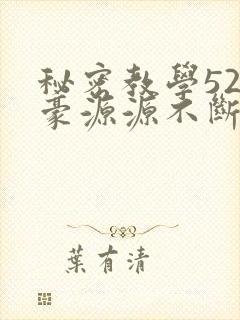 秘密教學52
豪源源不斷
葉有清